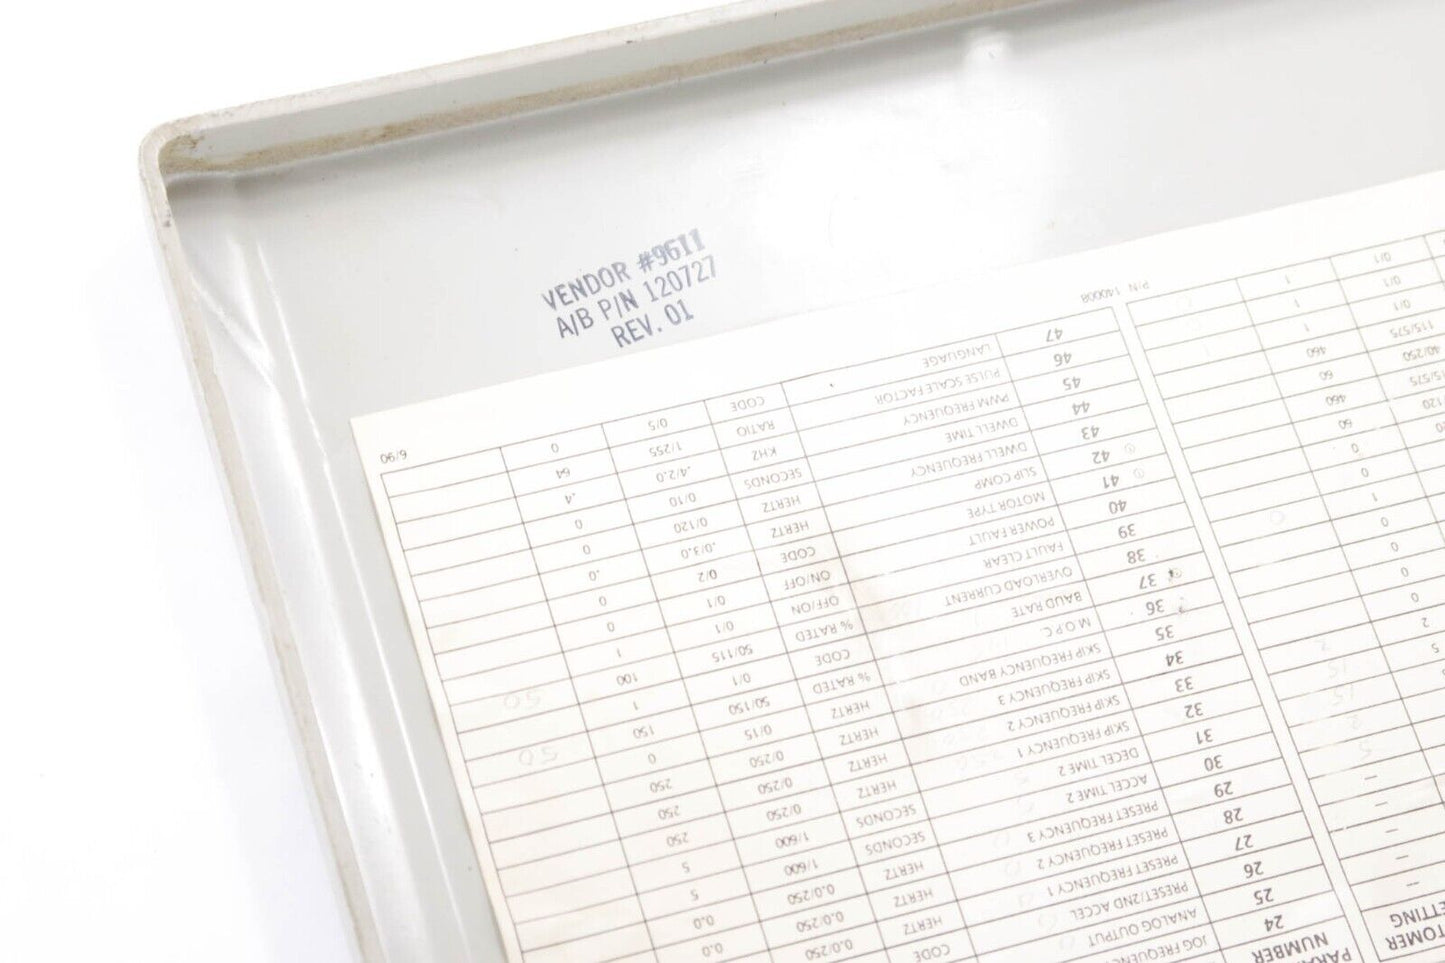 VENDOR #9611
A/B P/N 120727
REV. 01
NUMBER
24 JOG FREQUENCY
25 ANALOG OUTPUT
26 PRESET/2ND ACCEL CODE
27 PRESET FREQUENCY 1 HERTZ 0.0/250 0.0
28 PRESET FREQUENCY 2 HERTZ 0.0/250 0.0
29 PRESET FREQUENCY 3 HERTZ 0.0/250
30 ACCEL TIME 2 SECONDS 1/600 5
31 DECEL TIME 2 SECONDS 1/600 5
32 SKIP FREQUENCY 1 HERTZ 0/250 250
33 SKIP FREQUENCY 2 HERTZ 0/250 250
34 SKIP FREQUENCY 3 HERTZ 0/250 250
35 SKIP FREQUENCY BAND HERTZ 0/15 0
36 M.O.P.C. % RATED 50/150 150 50
37 BAUD RATE CODE 0/1 1
38 OVERLOAD CURRENT % RATED 50/115 100 50
39 FAULT CLEAR OFF/ON 0/1 1
40 POWER FAULT ON/OFF 0/1 0
41 MOTOR TYPE CODE 0/2 0
42 SLIP COMP HERTZ .0/3.0 .0
43 DWELL FREQUENCY HERTZ 0/120 0
44 DWELL TIME SECONDS 0/10 0
45 PWM FREQUENCY KHZ .4/2.0 .4
46 PULSE SCALE FACTOR RATIO 1/255 64
47 LANGUAGE CODE 0/5 0
P/N 140008
6/90
5
2
15
15
2
5
2
0
0
0
0
1
0
0
60
460
60
40/250
460
115/575
1
0/1
1
0/1
1
0/1